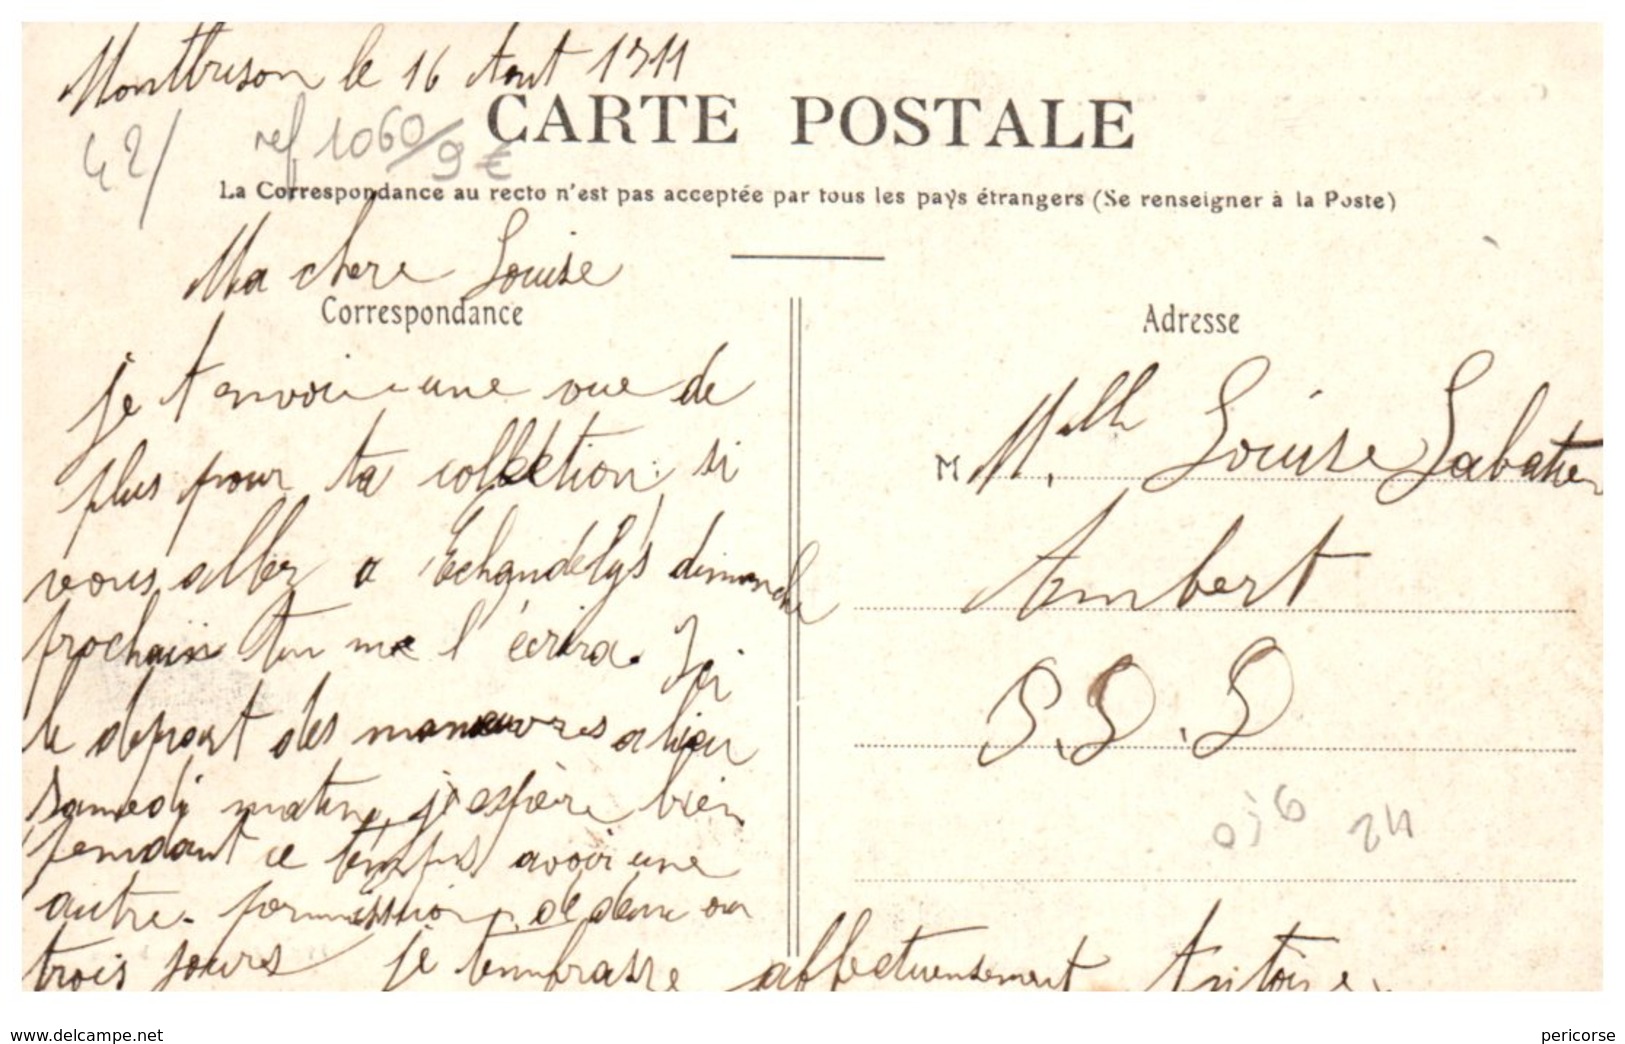 Montbrison le 16 Aout 1911
42/ ref 1060/9€
CARTE POSTALE
La Correspondance au recto n'est pas acceptée par tous les pays étrangers (Se renseigner à la Poste)
Ma chere Louise
Correspondance
je t envoie une vue de
plus pour ta collection: si
vous allez a Echandelys dimanche
prochain tu me l'écrira. Ici
le depart des manœuvres a lieu
samedi matin, j'espère bien
pendant ce temps avoir une
autre permission de deux ou
trois jours je t'embrasse affectueusement Antoine
Adresse
M Melle Louise Sabatier
Ambert
P. D. D
24
www.delcampe.net
pericorse